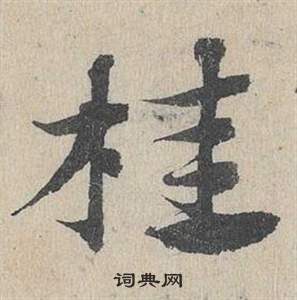 桂
词典网